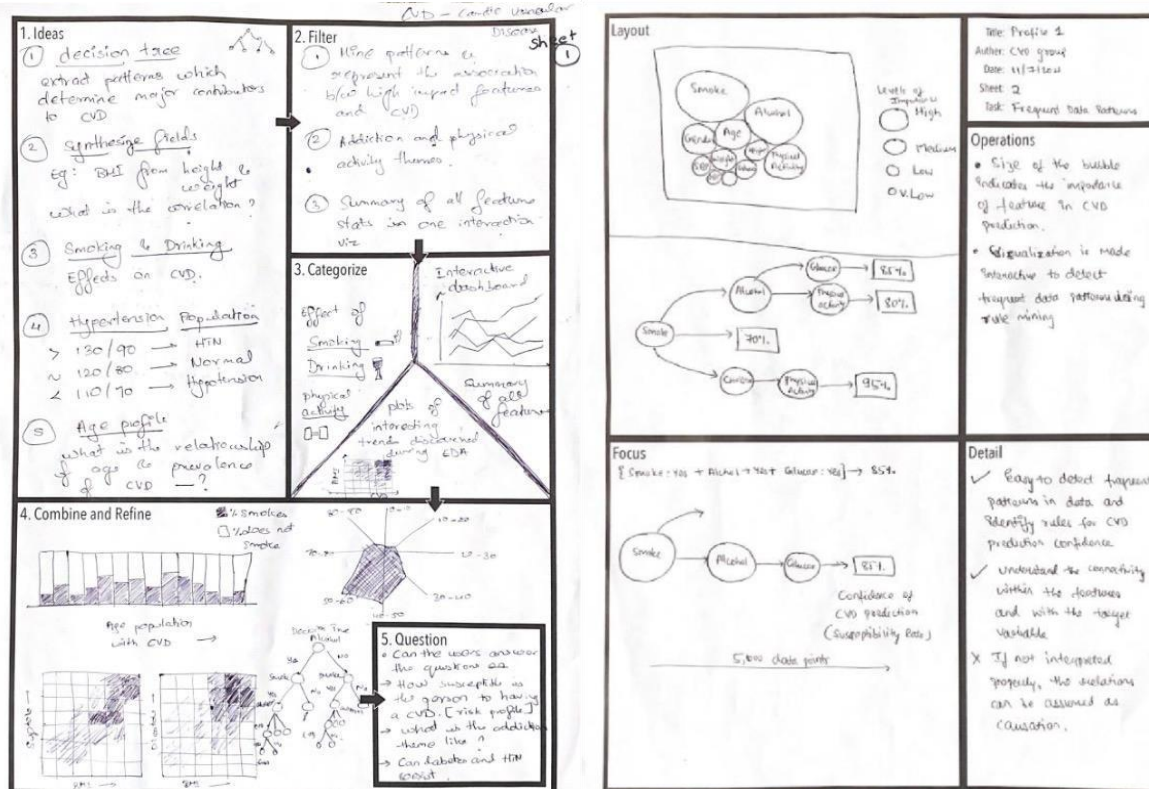 CVD - Cardio Vascular
Disease
Sheet
1
1. Ideas
1 decision tree
extract patterns which
determine major contributors
to CVD
2 Synthesize fields
Eg: BMI from height &
weight
What is the correlation?
3 Smoking & Drinking
Effects on CVD.
4 Hypertension Population
> 130/90 → HTN
~ 120/80 → Normal
< 110/70 → Hypotension
5 Age profile
what is the relationship
of age & prevalence
of CVD — ?
2. Filter
1 Mine patterns &
represent the association
b/w high impact features
and CVD
2 Addiction and physical
activity themes.
3 Summary of all feature
stats in one interaction
viz
3. Categorize
Effect of
Smoking
Drinking
physical
activity
Interactive
dashboard
Summary
of all
features
plots of
interesting
trends discovered
during EDA
4. Combine and Refine
% smokes
% does not
smoke
10-20
20-30
30-40
40-50
50-60
Age population
with CVD →
Decision Tree
Alcohol
BMI →
BMI →
5. Question
• Can the users answer
the questions as
→ How susceptible is
the person to having
a CVD. [risk profile]
→ what is the addiction
theme like?
→ Can diabetes and HTN
Layout
Smoke
Alcohol
Gender
Age
Physical
Activity
Levels of
High
Medium
Low
V.Low
Smoke
Alcohol
Glucose
85%
Physical
activity
80%
70%
Physical
Activity
95%
Title: Profile 1
Author: CVD group
Date:
Sheet: 2
Task: Frequent Data Patterns
Operations
• Size of the bubble
indicates the importance
of feature in CVD
prediction.
• Visualization is made
interactive to detect
frequent data patterns during
rule mining
Focus
[Smoke: Yes + Alchol → Yes + Glucose: Yes] → 85%
Smoke
Alcohol
Glucose
85%
Confidence of
CVD prediction
(Susceptibility Rate)
5,000 data points
Detail
✓ Easy to detect frequent
patterns in data and
identify rules for CVD
prediction confidence
✓ understand the connectivity
within the features
and with the target
variable
X If not interpreted
properly, the relations
can be assumed as
causation.